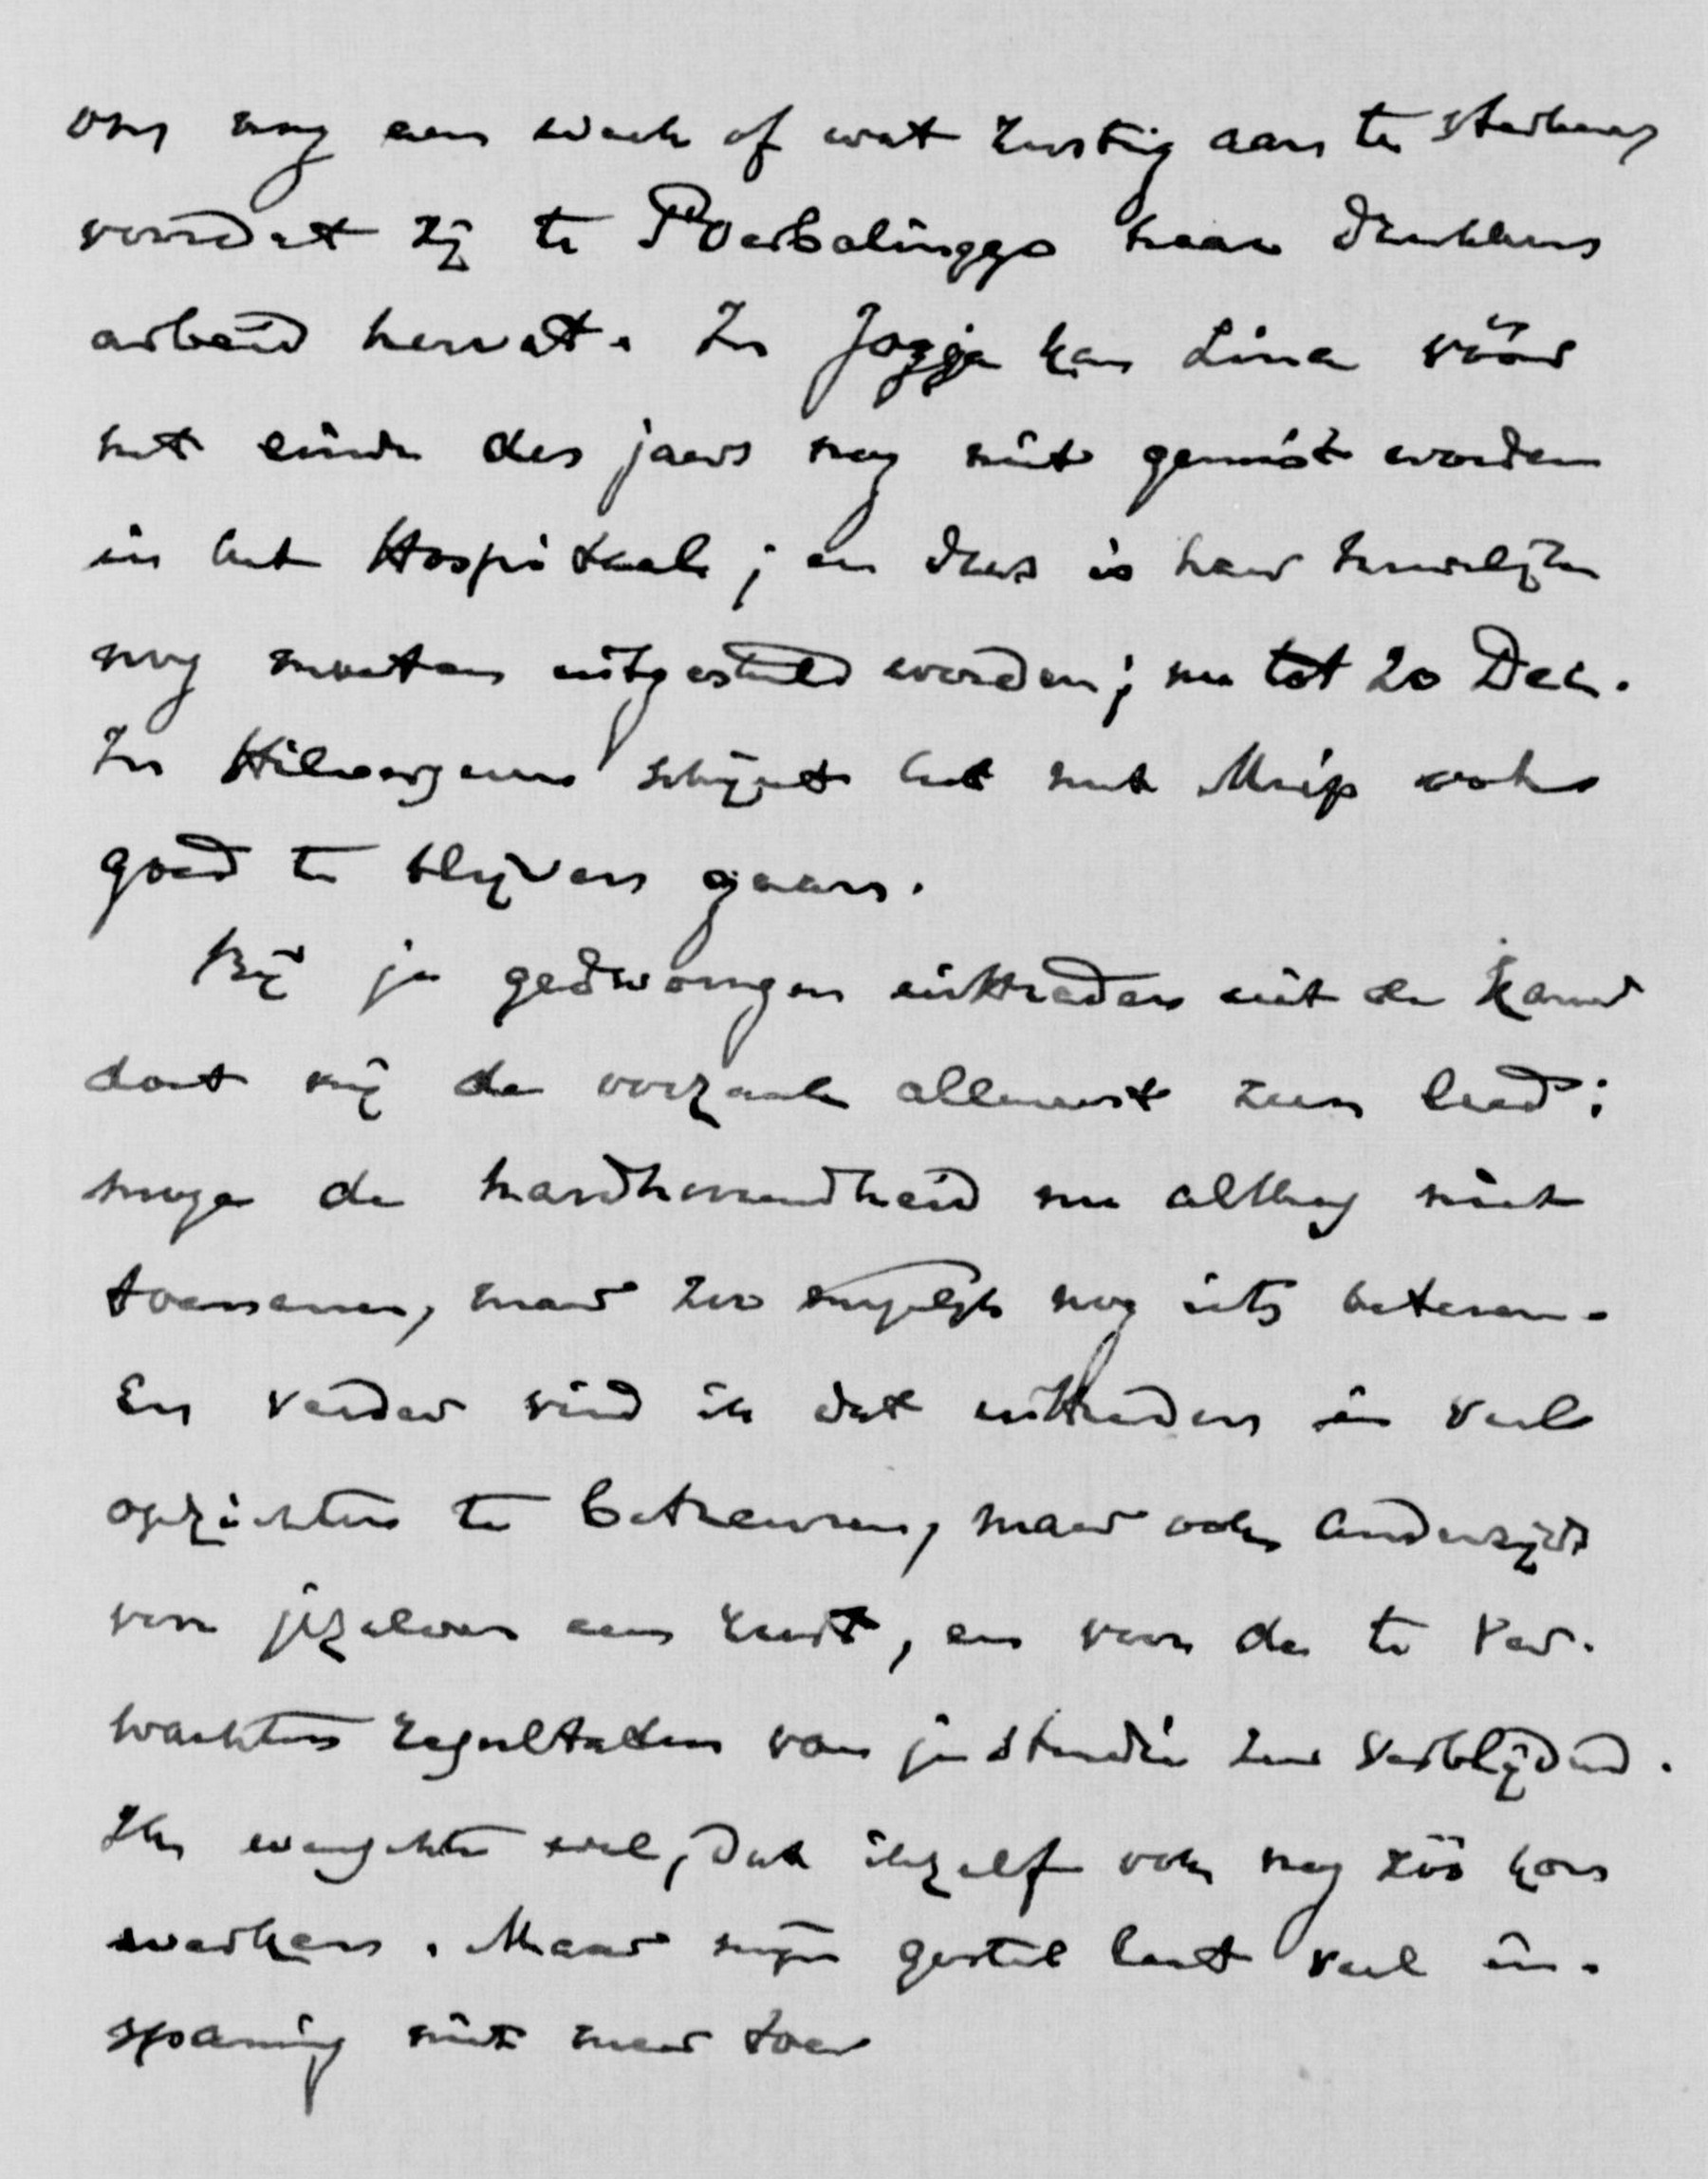 om nog een week of wat rustig aan te sterken
voordat zij te Poerbolinggo haar drukken
arbeid hervat. In Jogja kan Lina vóór
het einde des jaars nog niet gemist worden
in het Hospitaal; en dus is haar huwelijk
nog moeten uitgesteld worden; nu tot 20 Dec.
In Hilversum schijnt het met Miep ook
goed te blijven gaan.
Bij je gedwongen uittreden uit de Kamer
doet mij de oorzaak allermeest zeer leed:
moge de hardhorendheid nu althans niet
toenemen, maar zoo mogelijk nog iets beteren.
En verder vind ik dat uittreden in veel
opzichten te betreuren, maar ook anderzijds
voor jezelven een rust, en voor de te ver-
wachten resultaten van je studie zeer verblijdend.
Ik wenschte wel, dat ikzelf ook nog zóó kon
werken. Maar mijn gestel laat veel in-
spanning niet meer toe